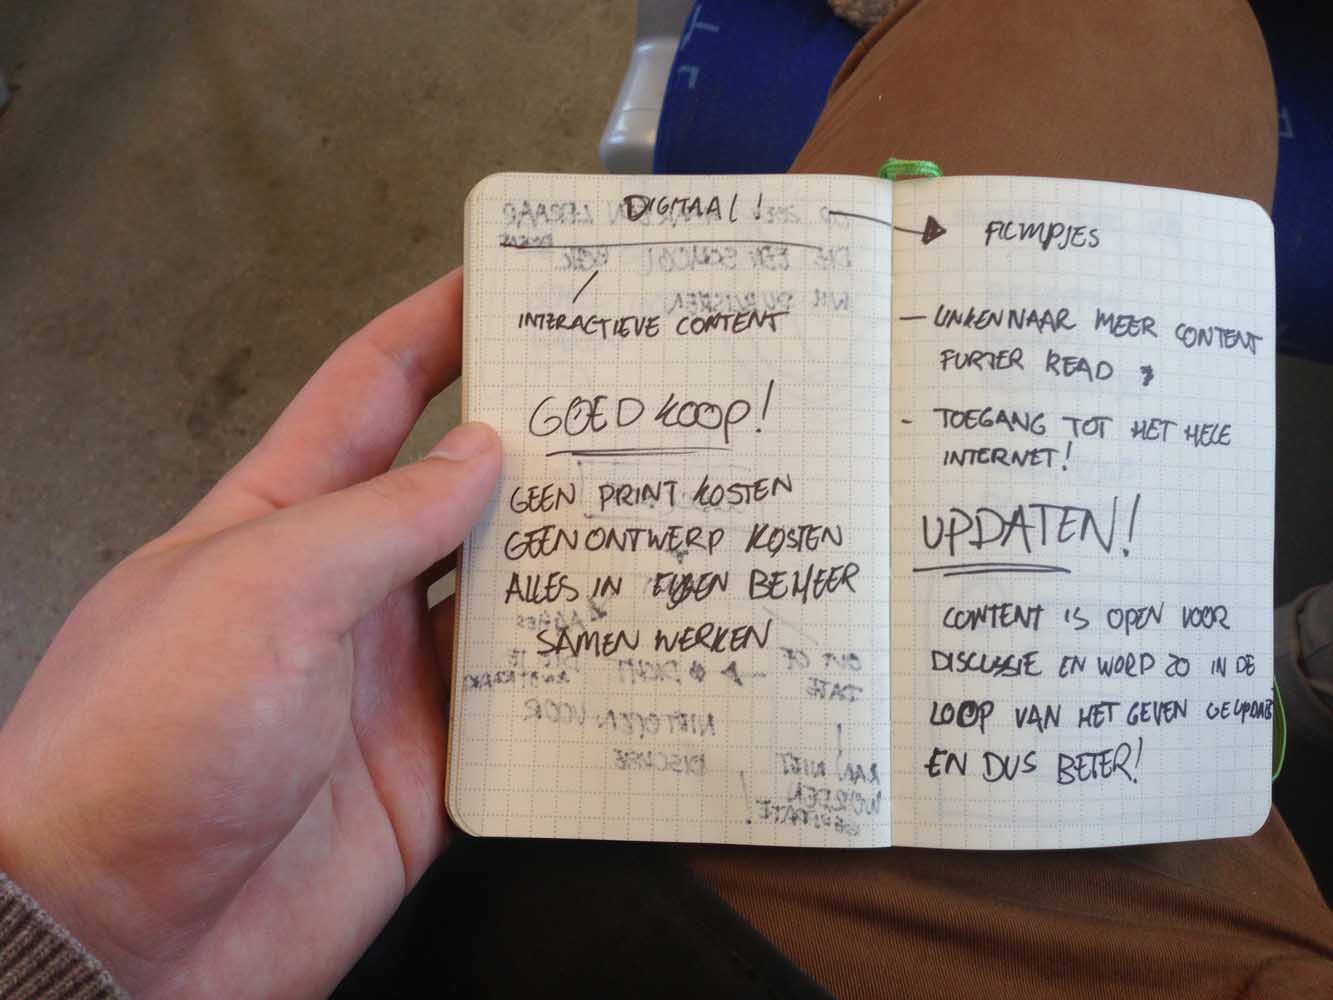 DIGITAAL!
INTERACTIEVE CONTENT
GOEDKOOP!
GEEN PRINT KOSTEN
GEEN ONTWERP KOSTEN
ALLES IN EIGEN BEHEER
SAMEN WERKEN
FILMPJES
— LINKEN NAAR MEER CONTENT
FURTER READ
- TOEGANG TOT HET HELE
INTERNET!
UPDATEN!
CONTENT IS OPEN VOOR
DISCUSSIE EN WORD ZO IN DE
LOOP VAN HET GEVEN GEUPDATE
EN DUS BETER!